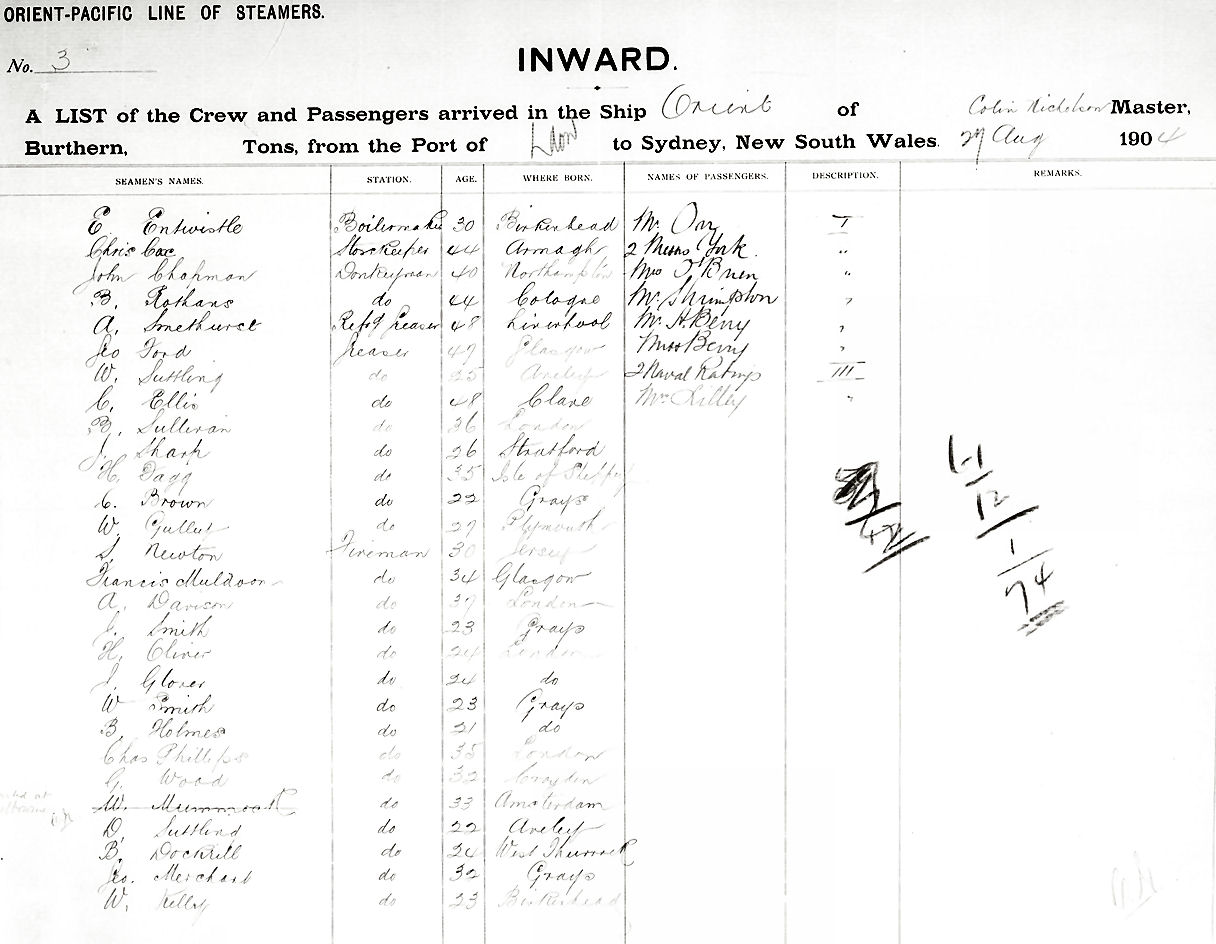 ORIENT-PACIFIC LINE OF STEAMERS.
No. 3
INWARD.
A LIST of the Crew and Passengers arrived in the Ship Orient of Colin Nicholson Master,
Burthern, Tons, from the Port of to Sydney, New South Wales. 27 Aug 1904
SEAMEN'S NAMES. STATION. AGE. WHERE BORN. NAMES OF PASSENGERS. DESCRIPTION. REMARKS.
E. Entwistle Boilermaker 30 Birkenhead Mr. Orr I
Chris Cox Storekeeper 44 Armagh 2 Misses York. "
John Chapman Donkeyman 40 Northampton Mrs O'Brien "
B. Rothans do 44 Cologne Mr. Shrimpton "
A. Smethurst Refg Greaser 48 Liverpool Mr. H. Berry "
Geo Ford Greaser 49 Glasgow Miss Berry "
W. Suttling do 25 Aveley 2 Naval Ratings III
C. Ellis do 48 Clare Mr Lilley "
B. Sullivan do 36 London
J. Sharp do 26 Stratford
H. Dagg do 35 Isle of Sheppey
C. Brown do 22 Grays
W. Gulley do 27 Plymouth
S. Newton Fireman 30 Jersey
Francis Muldoon do 34 Glasgow
A. Davison do 39 London
J. Smith do 23 Grays
H. Oliver do 24 London
J. Glover do 24 do
W Smith do 23 Grays
B. Holmes do 21 do
Chas Phillips do 35 London
G. Wood do 32 Croyden
W. do 33 Amsterdam
D. Suttling do 22 Aveley
B. Dockrill do 24 West Thurrock
Geo. Merchant do 32 Grays
W. Kelly do 23 Birkenhead
42
51
12
1
74